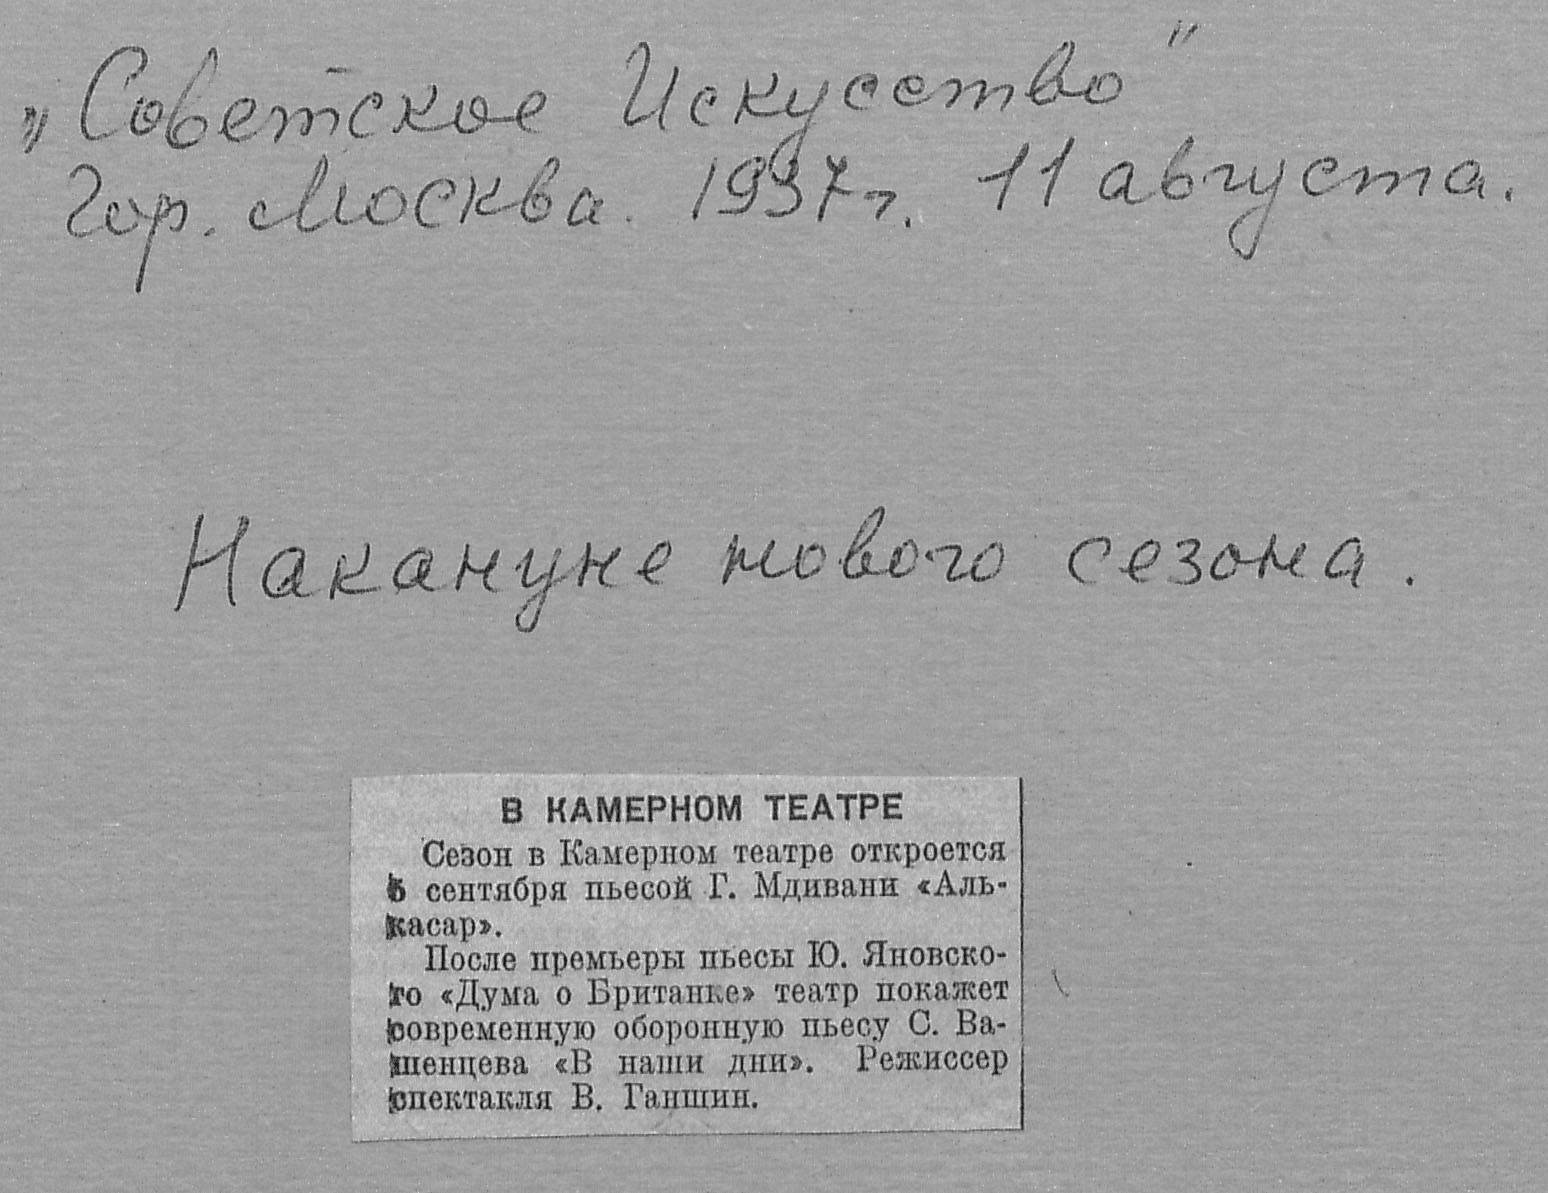 „Советское Искусство"
Гор. Москва. 1937 г. 11 августа.
Накануне нового сезона.
В КАМЕРНОМ ТЕАТРЕ
Сезон в Камерном театре откроется
5 сентября пьесой Г. Мдивани «Аль-
касар».
После премьеры пьесы Ю. Яновско-
го «Дума о Британке» театр покажет
современную оборонную пьесу С. Ва-
шенцева «В наши дни». Режиссер
спектакля В. Ганшин.